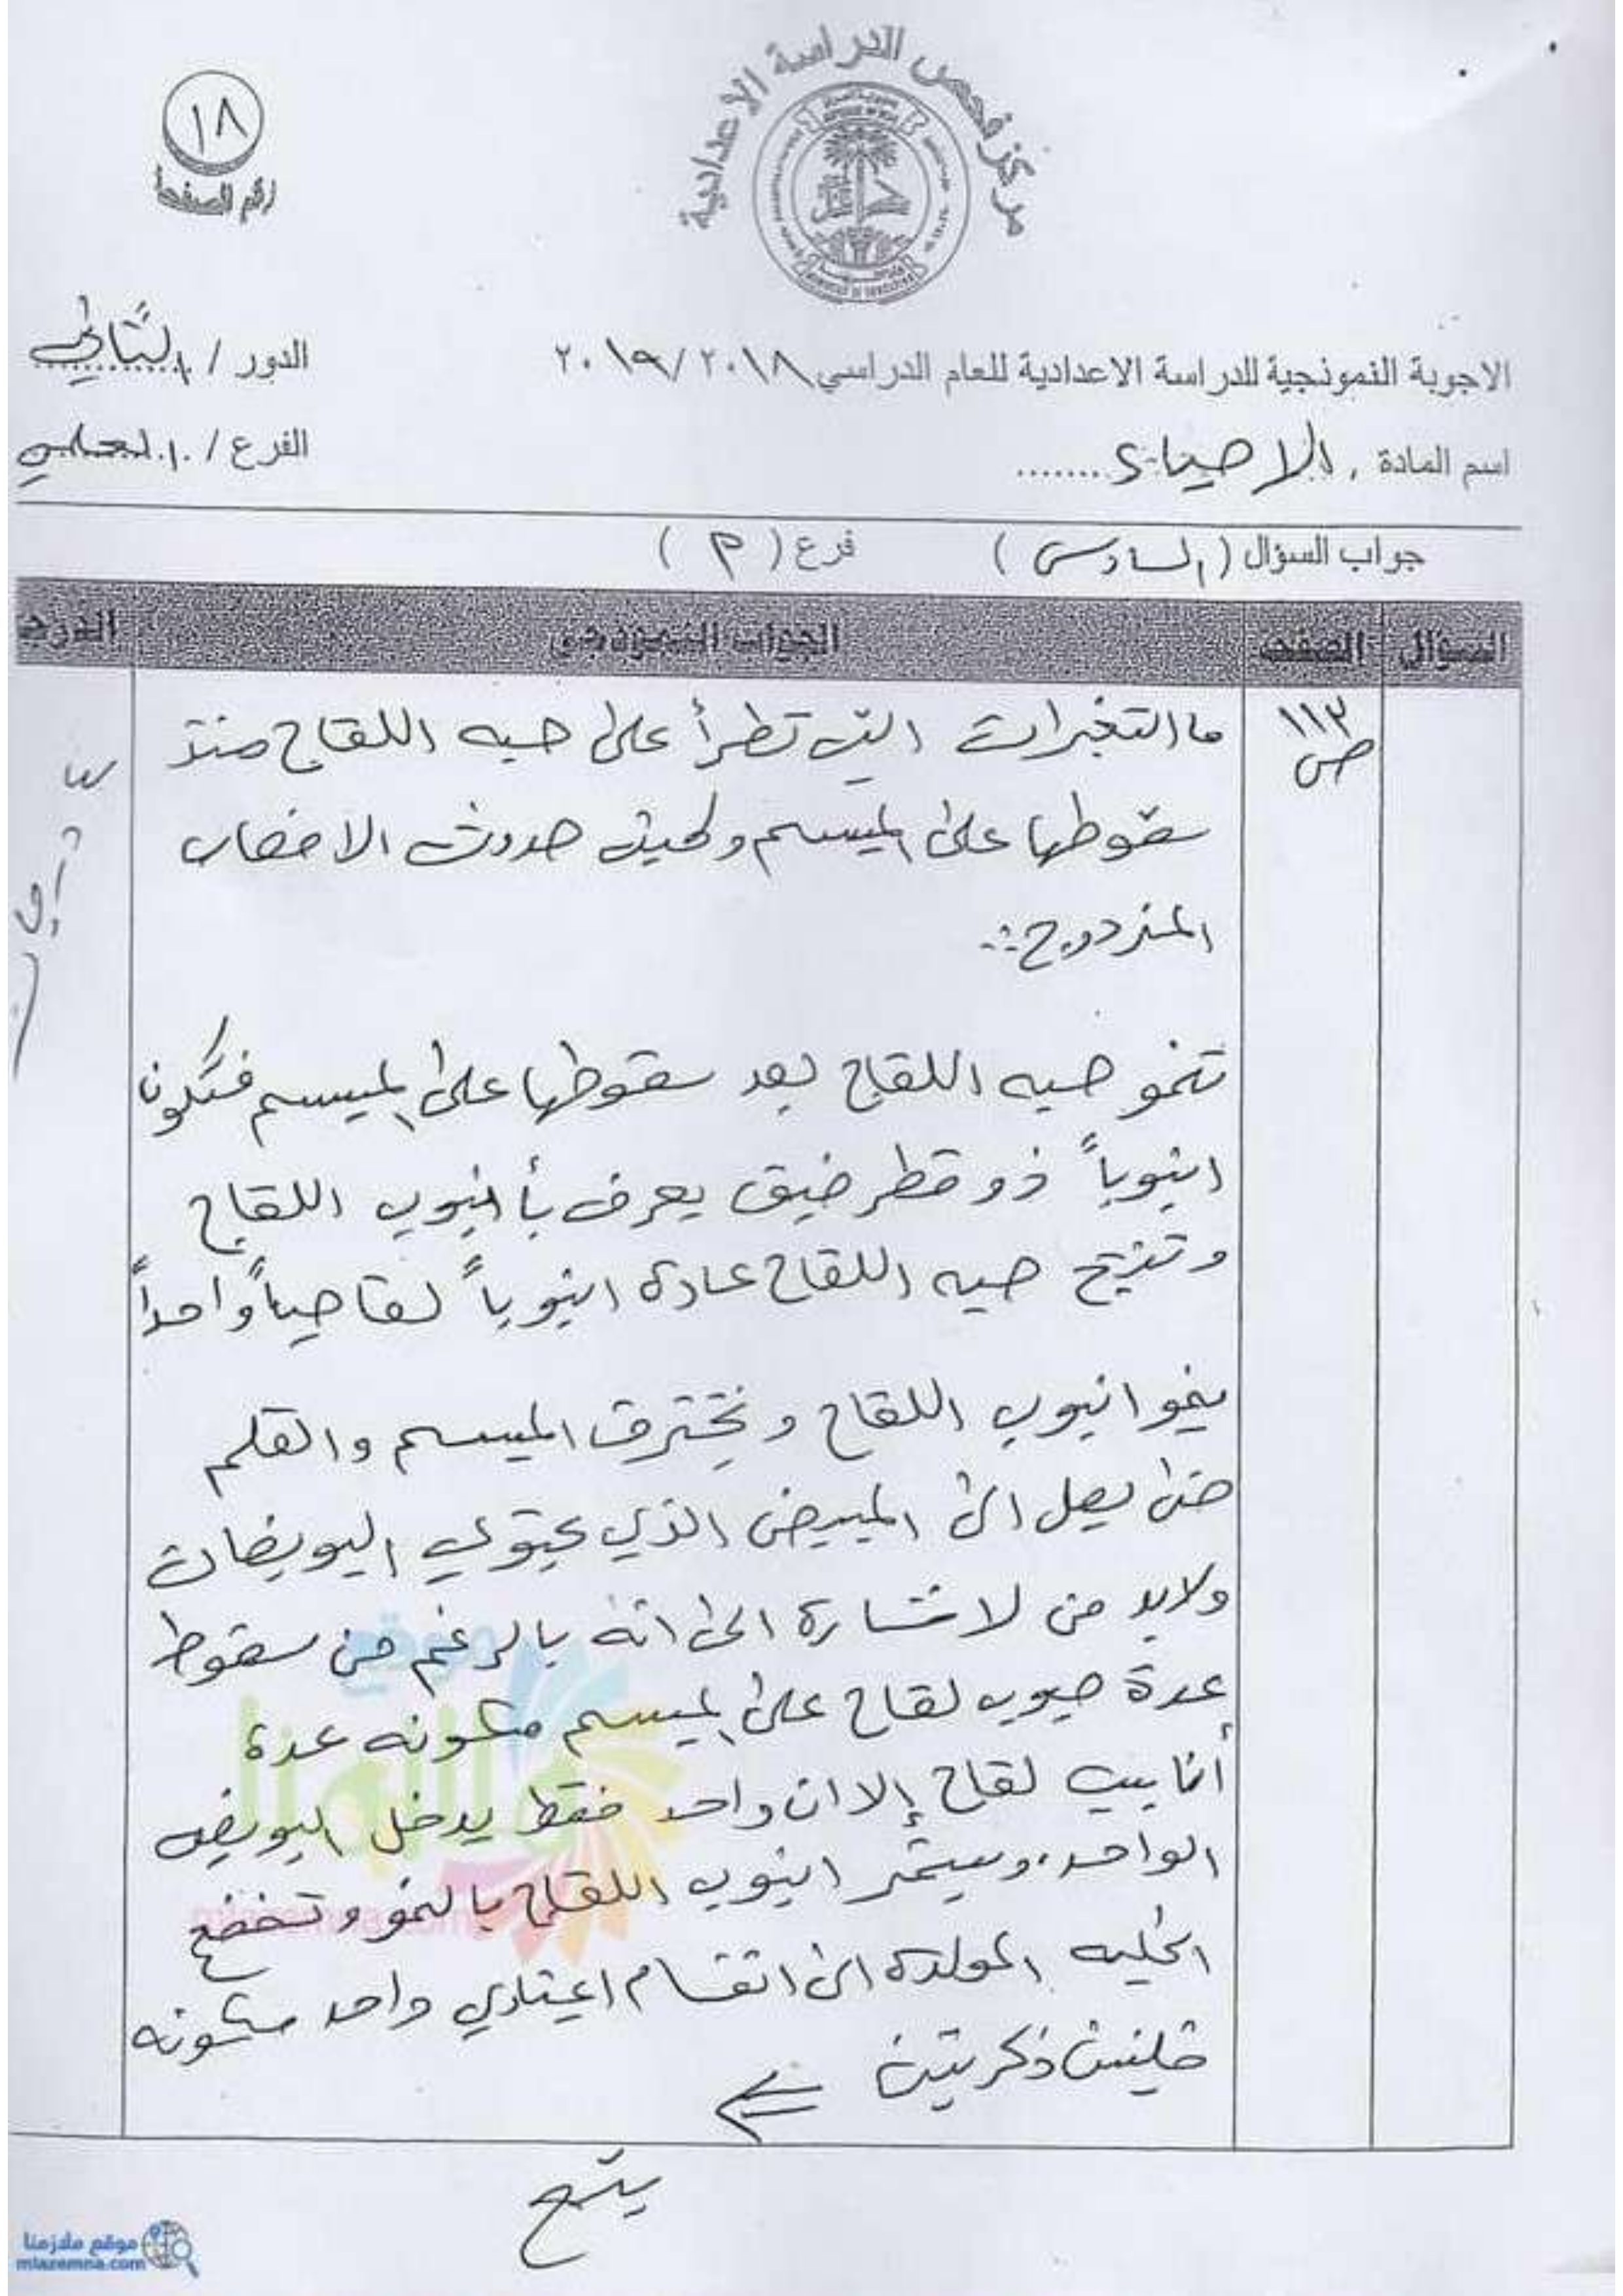 مركز فحص الدراسة الاعدادية
١٨
رقم الصفحة
الاجوبة النموذجية للدراسة الاعدادية للعام الدراسي ٢٠١٨/٢٠١٩
الدور / الثاني
اسم المادة . الاحياء .......
الفرع / العلمي
جواب السؤال ( السادس ) فرع ( م )
السؤال الصفحة الجواب النموذجي الدرجة
ص ١١٣
ما التغيرات التي تطرأ على حبه اللقاح منذ
سقوطها على الميسم ولحين حدوث الاخصاب
المزدوج :-
تنمو حبه اللقاح بعد سقوطها على الميسم فتكون
انبوباً ذو قطر ضيق يعرف بأنبوب اللقاح
وتنتج حبه اللقاح عادة انبوباً لقاحياً واحداً
ينمو انبوب اللقاح ويخترق الميسم والقلم
حتى يصل الى المبيض الذي يحتوي البويضات
ولابد من لاشارة الى انه بالرغم من سقوط
عدة حبوب لقاح على الميسم مكونه عدة
أنابيب لقاح إلا ان واحد فقط يدخل البويضه
الواحد، ويستمر انبوب اللقاح بالنمو وتخضع
الخليه المولدة الى انقسام اعتيادي واحد مكونه
خليتين ذكريتين
يتبع
موقع ملازمنا
mlazemna.com